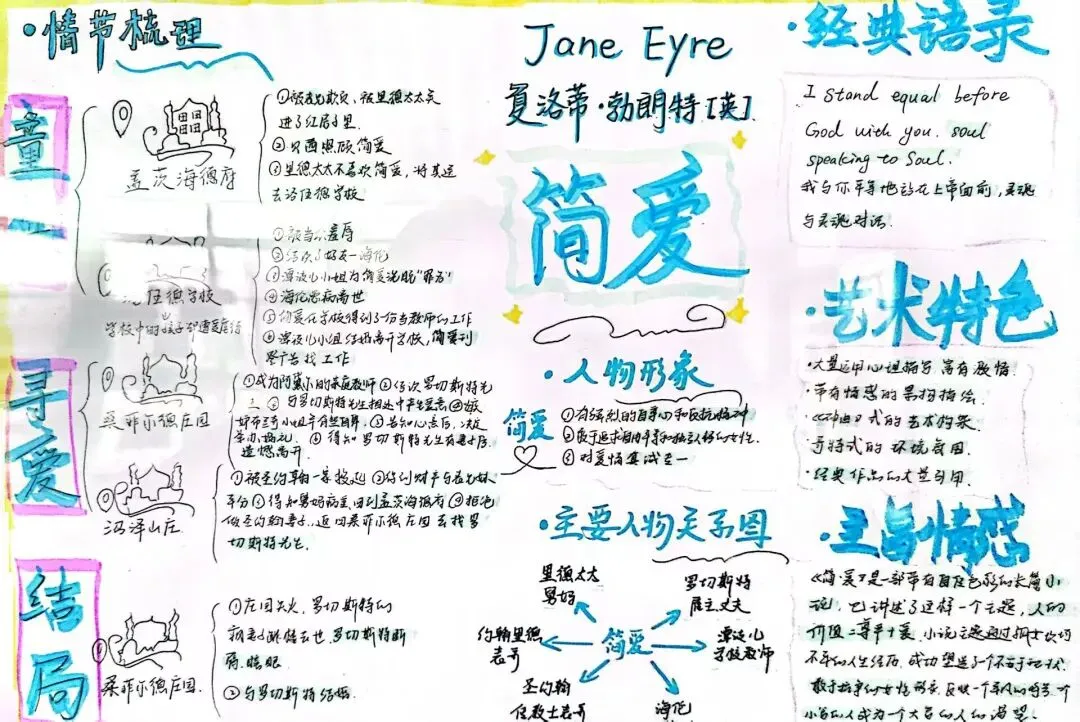 ·情节梳理
童
盖茨海德府
①被表兄欺负，被里德太太关
进了红房子里
②贝西照顾简爱
③里德太太不喜欢简爱，将其送
去洛任德学校
任德学校
学校中的孩子都遭受虐待
①被当众羞辱
②结交了好友—海伦
③谭波儿小姐为简爱洗脱"罪名"
④海伦患病离世
⑤简爱在学校得到了一份当教师的工作
⑥谭波儿小姐结婚离开学校，简爱刊
登广告找工作
寻爱
桑菲尔德庄园
①成为阿黛尔的家庭教师 ②结识罗切斯特先
生 ③与罗切斯特先生相处中产生爱意
婚礼 ⑥得知罗切斯特先生有妻子后，
遗憾离开
沼泽山庄
①被圣约翰一家接迎 ②得到财产与表兄妹
平分 ③得知舅妈病重，回到盖茨海德府 ④拒绝
做圣约翰妻子，返回桑菲尔德庄园去找罗
切斯特先生
结局
桑菲尔德庄园
①庄园失火，罗切斯特的
妻子 去世 罗切斯特断
臂，瞎眼
②与罗切斯特结婚
Jane Eyre
夏洛蒂·勃朗特[英]
简爱
·人物形象
简爱
①有强烈的自尊心和反抗精神
②敢于追求自由平等和独立人格的女性
③对爱情真诚专一
·主要人物关系图
里德太太
舅妈
罗切斯特
雇主丈夫
约翰里德
表哥
简爱
谭波儿
学校教师
圣约翰
传教士表哥
海伦
·经典语录
I stand equal before
God with you. soul
speaking to Soul.
我与你平等地站在上帝面前，灵魂
与灵魂对话.
·艺术特色
·大量运用心理描写 富有激情.
·带有情感的景物描绘.
·《神曲》式的艺术构架.
·哥特式的环境氛围.
·经典作品的大量引用
·主旨情感
《简·爱》是一部带有自传色彩的长篇小
说，它讲述了这样一个主题，人的
价值=尊严+爱.小说主题通过描写坎坷
不平的人生经历，成功塑造了一个不安于现状，
敢于抗争的女性形象，反映一个平凡的 一个
小写的人成为一个大写的人的渴望.